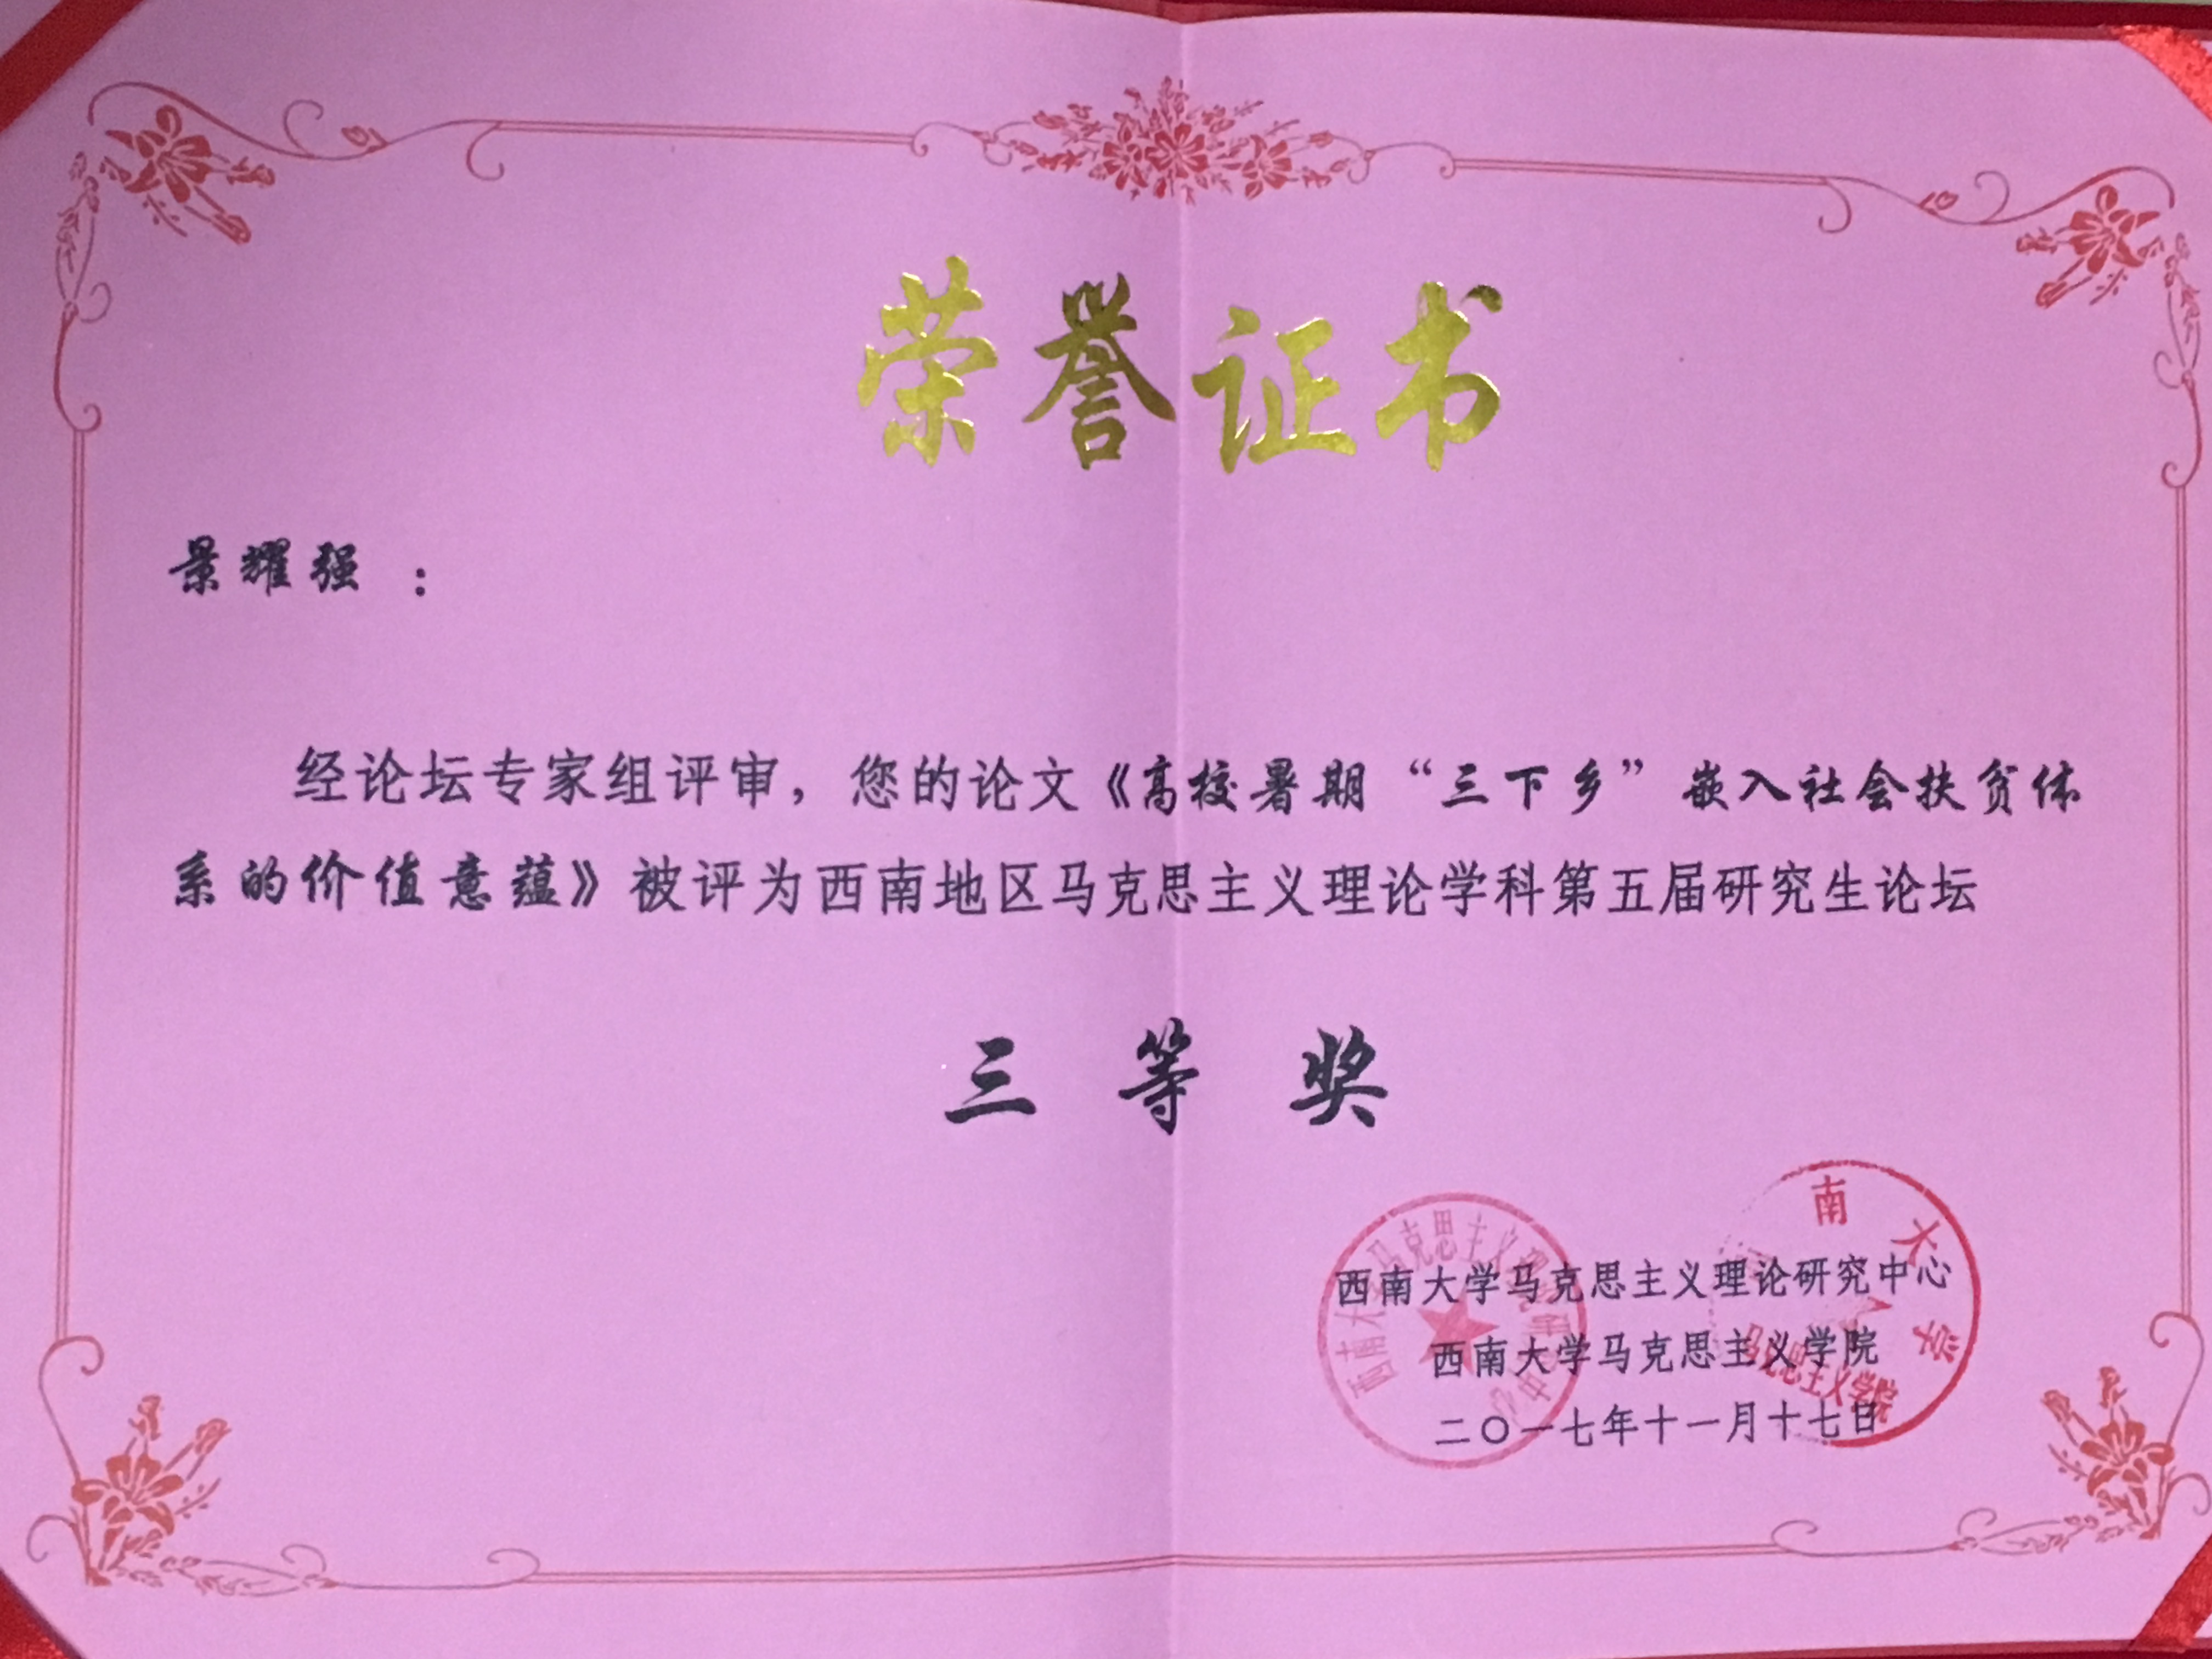 荣誉证书
景耀强：
经论坛专家组评审，您的论文《高校暑期“三下乡”嵌入社会扶贫体
系的价值意蕴》被评为西南地区马克思主义理论学科第五届研究生论坛
三等奖
西南大学马克思主义理论研究中心
西南大学马克思主义学院
二〇一七年十一月十七日
西南大学马克思主义理论研究中心
南大学
马克思主义学院